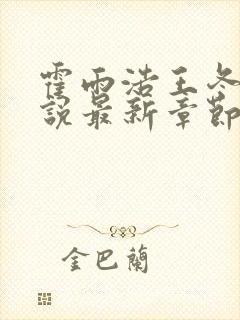 霍雨浩王冬
說最新章節
金巴蘭